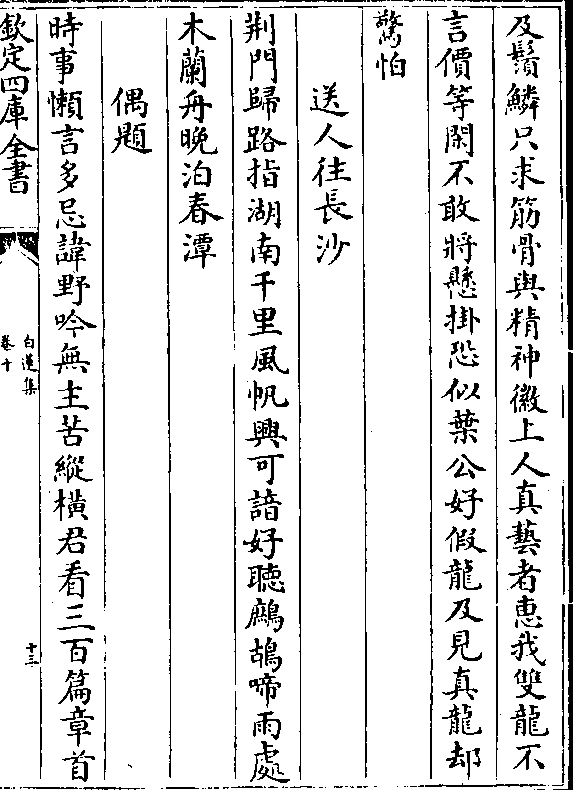 及鬚鱗只求筋骨與精神徽上人真藝者惠我雙龍不
言價等閑不敢將懸掛恐似葉公好假龍及見真龍却
驚怕
送人往長沙
荆門歸路指湖南千里風帆興可諳好聴鷓鴣啼雨處
木蘭舟晚泊春潭
偶題
時事懶言多忌諱野吟無主苦縱橫君看三百篇章首
欽定四庫全書
白蓮集
卷十
十三